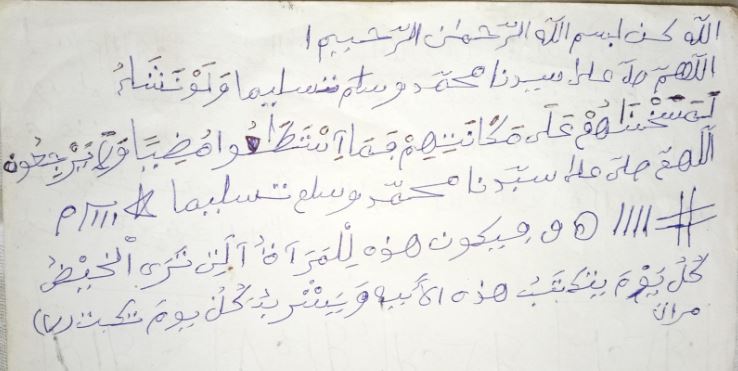 الله كن بسم الله الرّحمان الرّحيم ا
اللّهمّ صلّ على سيدنا محمّد وسلم تسليما وَلَوْ نَشَاءُ
لَمَسَخْنَاهُمْ عَلَى مَكَانَتِهِمْ فَمَا اِسْتَطَاعُوا مُضِيًا وَلَا يَرْجِعُون
اللهمّ صلى على سيّدنا محمّد وسلم تسليما
هذه لِلْمَرَأَةُ الَّتِى تَرَى الْحَيْضُ
كُلُّ يَوْمَ يتكتبُ هذه الأيه وَيَشْرِبُ كُلُّ يومَ تكبت (٧)
مرات